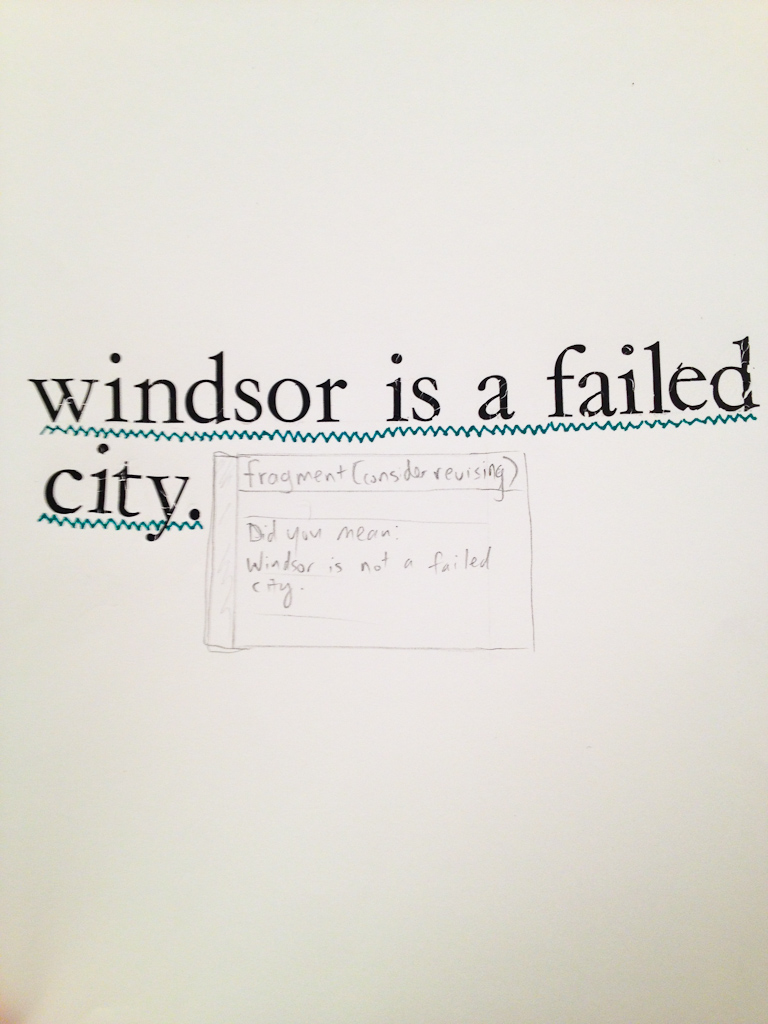 windsor is a failed
city.
fragment (consider revising)
Did you mean:
Windsor is not a failed
city.